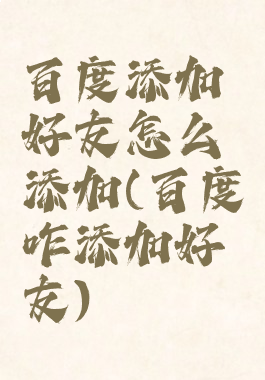 百度添加
好友怎么
添加(百度
咋添加好
友)